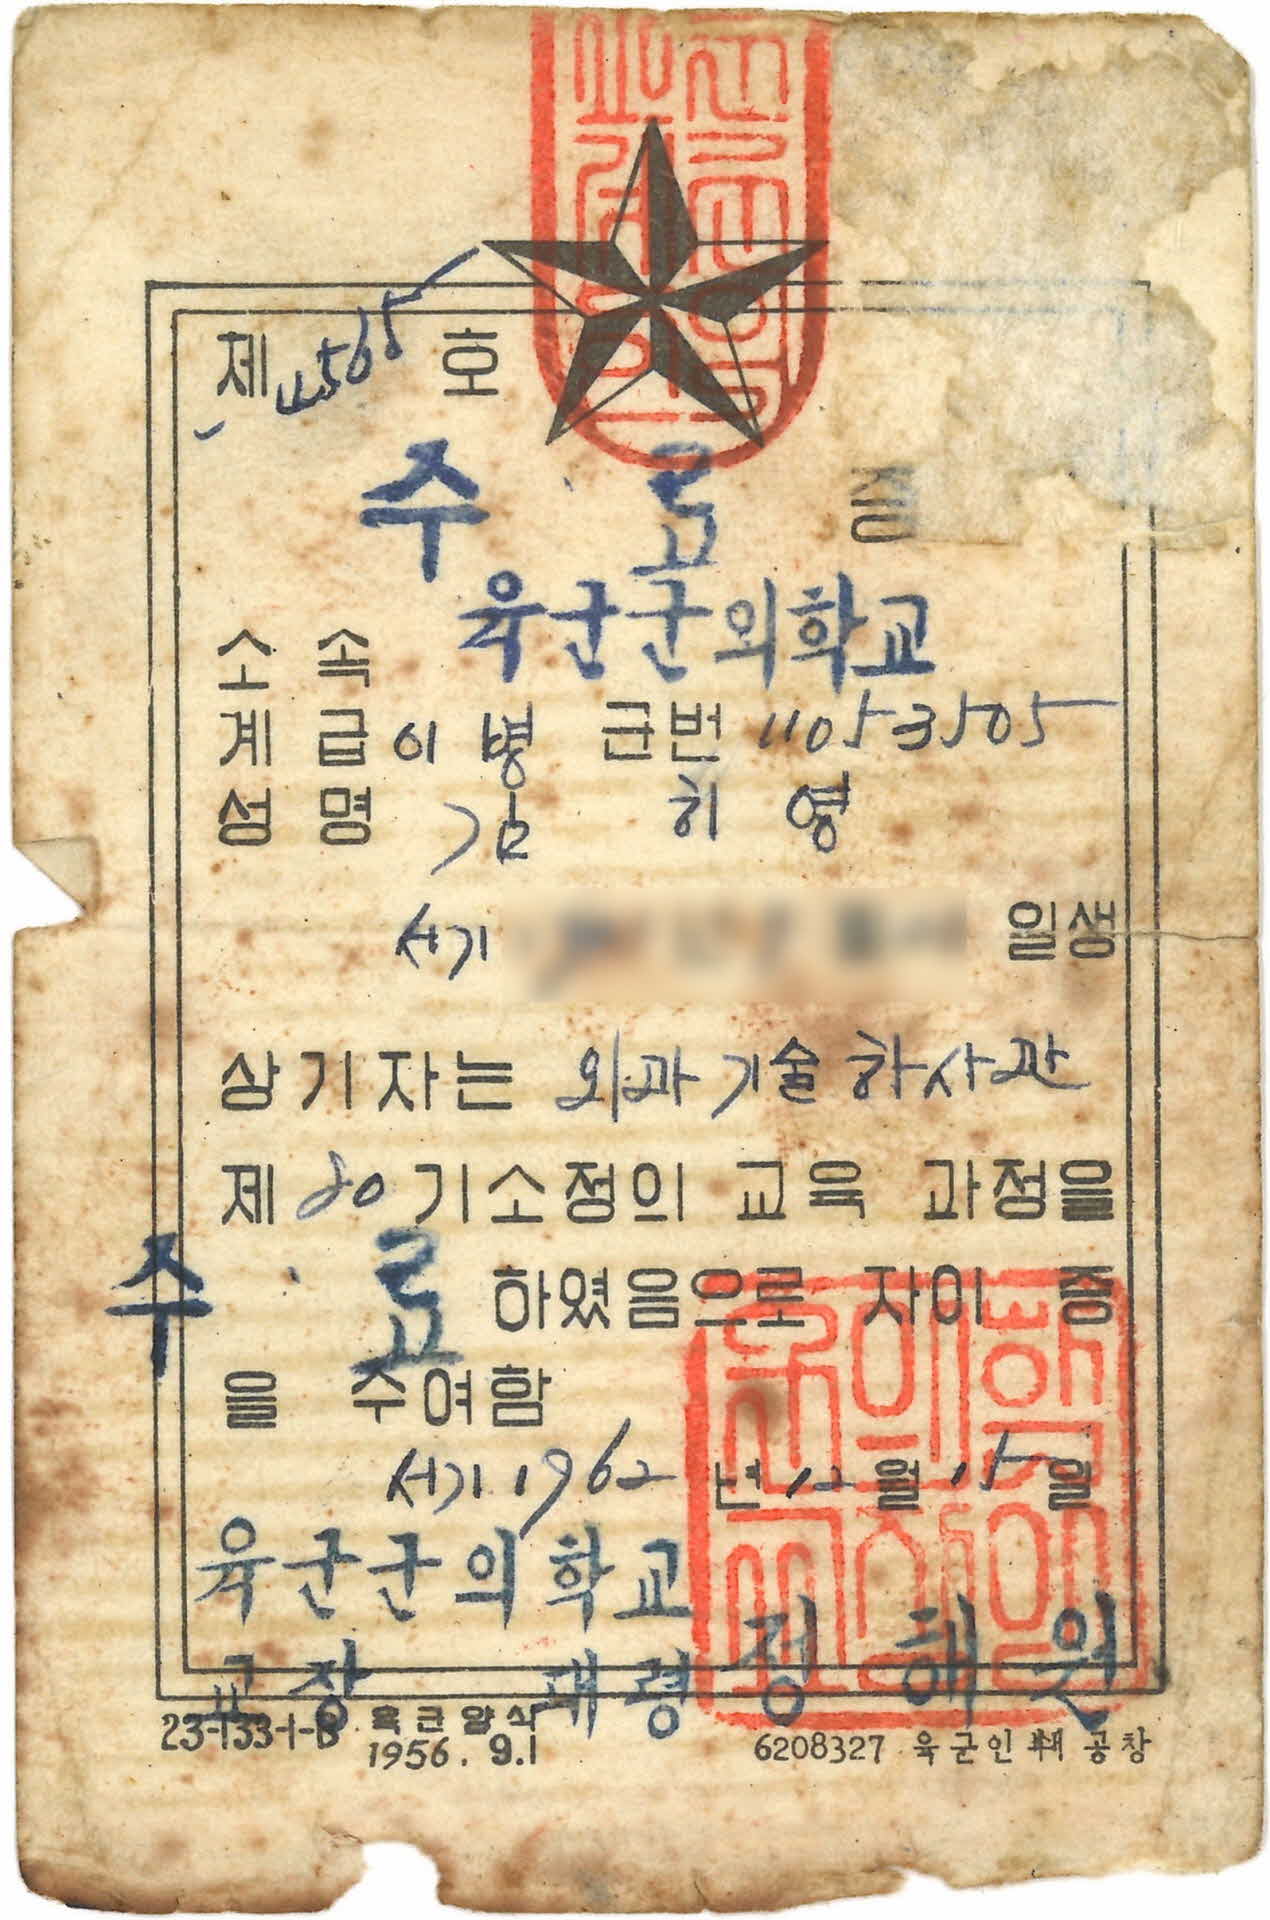 제 4565 호
수 료 증
소 속 육군군의학교
계 급 이 병 군번 11053505
성 명 김 히 영
서기 일생
상기자는 외과기술하사관
제 80 기소정의 교육 과정을
수 료 하였음으로 자이 증
을 수여함
서기 1962 년 12 월 15 일
육군군의학교
교장 대령 정해원
23-133-1-B 육군양식 1956. 9.1
6208327 육군인쇄공창